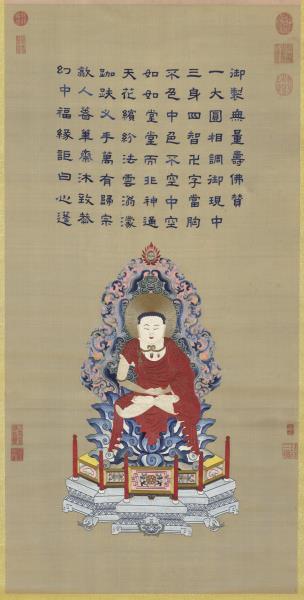 御製無量壽佛贊
一大圓相調御現中
三身四智卍字當胸
不色中色不空中空
如如堂堂而非神通
天花繽紛法雲滃濛
跏趺叉手萬有歸宗
人善齋沐致恭
幻中福緣詎曰心蓬